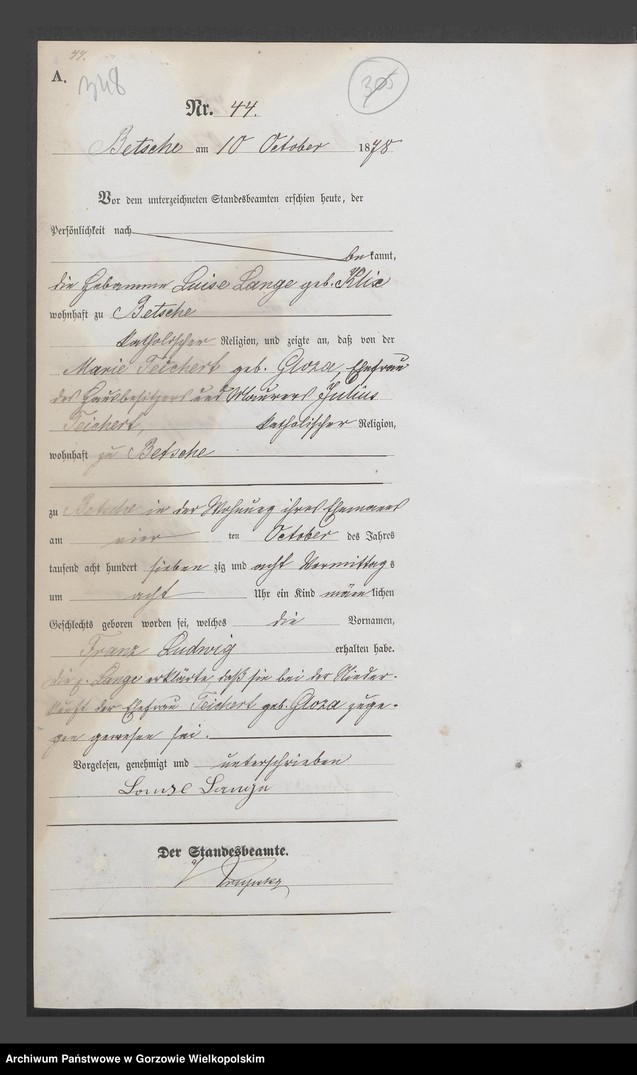 44.
A.
348
305
Nr. 44.
Betsche am 10 October 1878
Vor dem unterzeichneten Standesbeamten erschien heute, der
Persönlichkeit nach
be kannt,
die Hebamme Luise Lange geb. Klix
wohnhaft zu Betsche
katholischer Religion, und zeigte an, daß von der
Marie Teichert geb. Gloza, Ehefrau
des Hausbesitzers und Maurers Julius
Teichert, katholischer Religion,
wohnhaft zu Betsche
zu Betsche in der Wohnung ihres Ehemanns
am vier ten October des Jahres
tausend acht hundert sieben zig und acht Vormittags
um acht Uhr ein Kind männlichen
Geschlechts geboren worden sei, welches die Vornamen,
Franz Ludwig erhalten habe.
die p. Lange erklärte daß sie bei der Nieder-
kunft der Ehefrau Teichert geb. Gloza zuge-
gen gewesen sei.
Vorgelesen, genehmigt und unterschrieben
Lange
Der Standesbeamte.
Archiwum Państwowe w Gorzowie Wielkopolskim